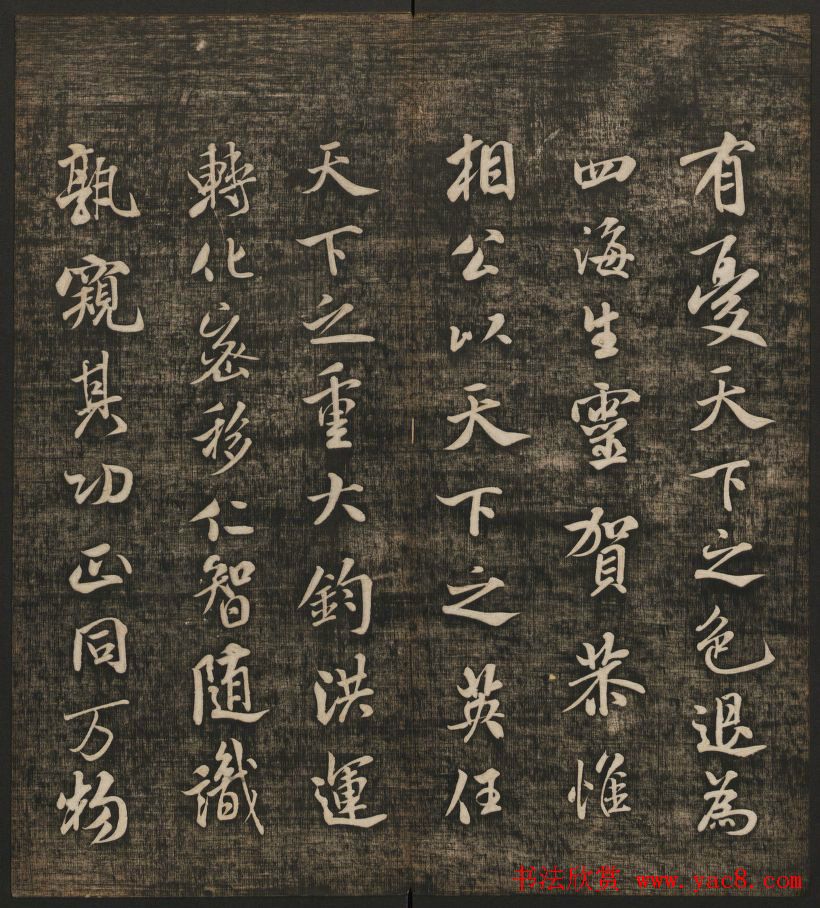 有憂天下之色退為
四海生靈賀恭惟
相公以天下之英任
天下之重大鈞洪運
轉化密移仁智隨識
孰窺其功正同万物
书法欣赏 www.yac8.com